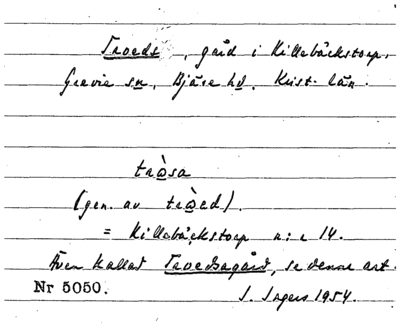 Troeds , gård i Killebäckstorp,
Grevie sn, Bjäre hd. Krist. län.
traͦsa
(gen. av traͦed).
= Killebäckstorp n:r 14.
Även kallad Troedsagård, se denna art.
Nr 5050. J. Ingers 1954.